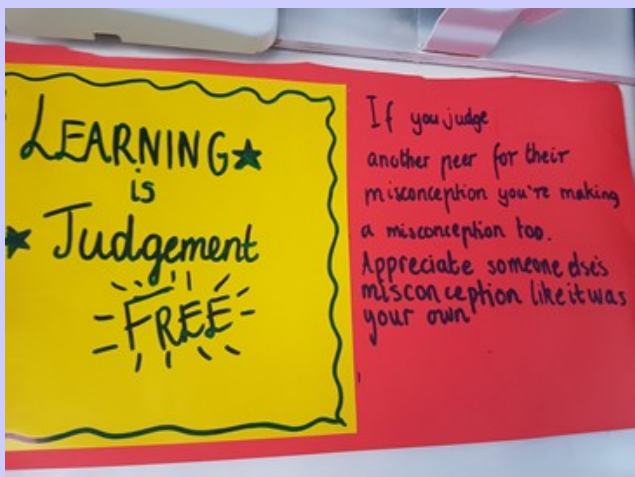 LEARNING
is
Judgement
FREE
If you judge
another peer for their
misconception you're making
a misconception too.
Appreciate someone else's
misconception like it was
your own